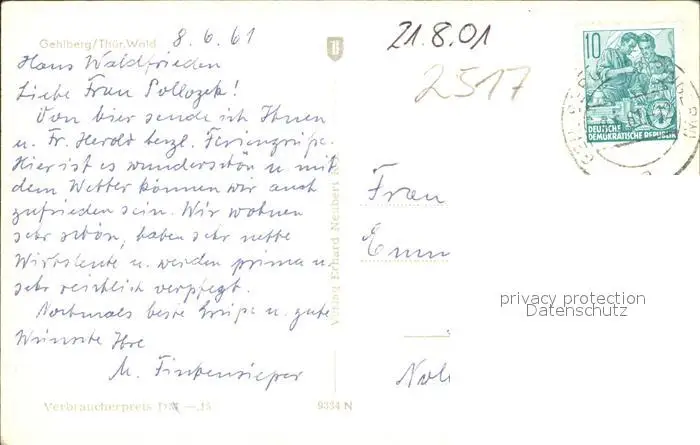 Gehlberg/Thür. Wald
8.6.61
Haus Waldfrieden
Liebe Frau Pollozek!
Von hier sende ich Ihnen
u. Fr. Herold herzl. Feriengrüße.
Hier ist es wunderschön u. mit
dem Wetter können wir auch
zufrieden sein. Wir wohnen
sehr schön, haben sehr nette
Wirtsleute u. werden prima u.
sehr reichlich verpflegt.
Nochmals beste Grüße u. gute
Wünsche Ihre
M. Finkensieper
Verbraucherpreis DM —,15
9334 N
Verlag Erhard Neubert
21.8.01
2517
10
DEUTSCHE
DEMOKRATISCHE REPUBLIK
Frau
privacy protection
Datenschutz